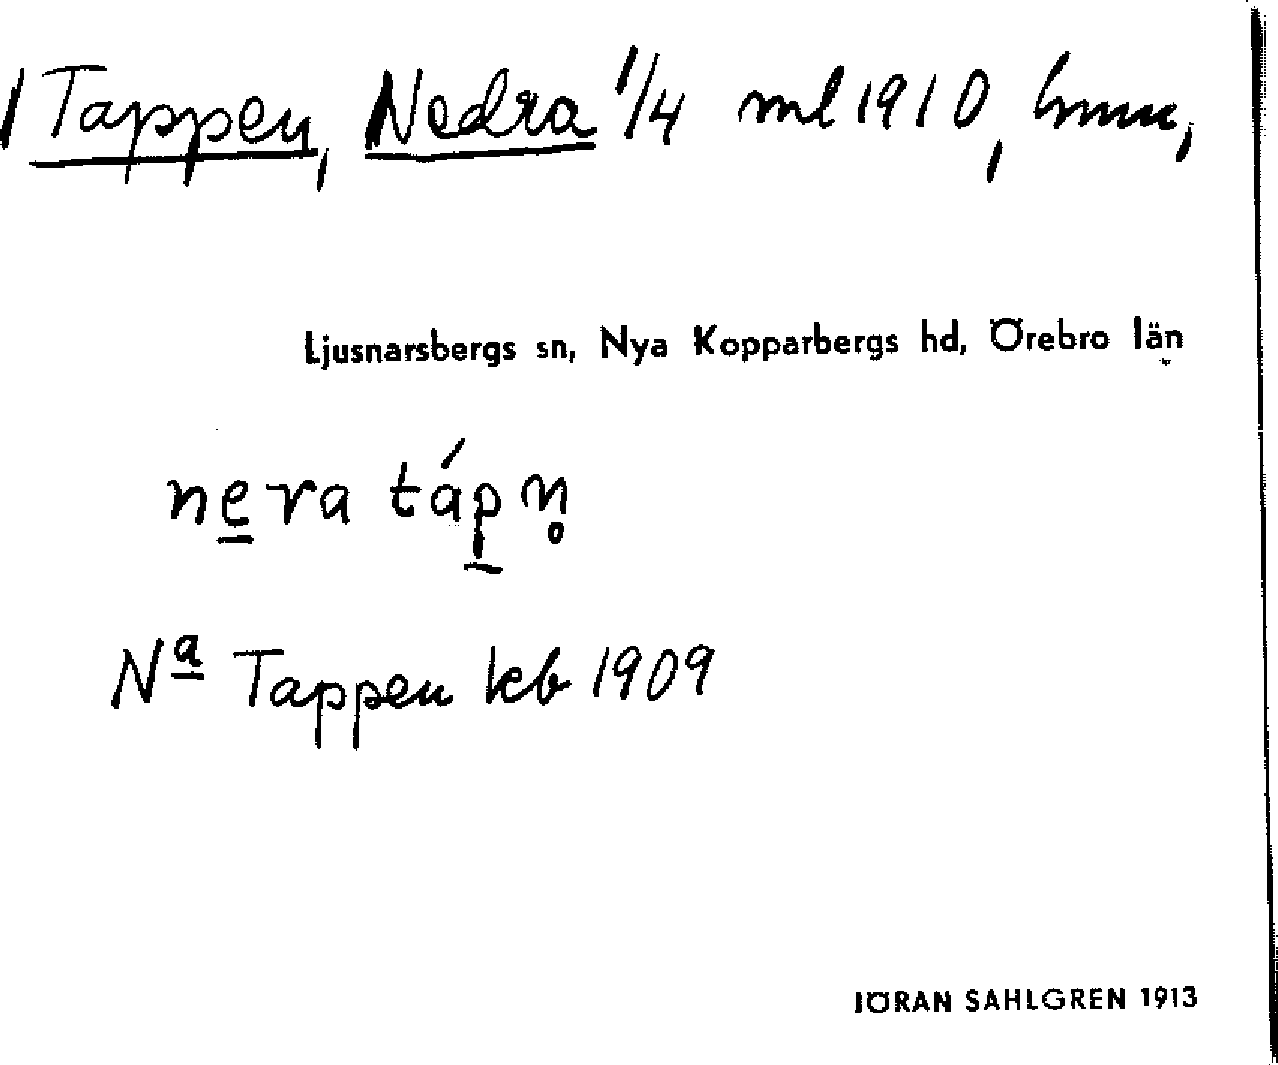 Tappen, Nedra 1/4 ml 1910, hmn,
Ljusnarsbergs sn, Nya Kopparbergs hd, Örebro län
nera tápn̥
Na Tappen kb 1909
JÖRAN SAHLGREN 1913